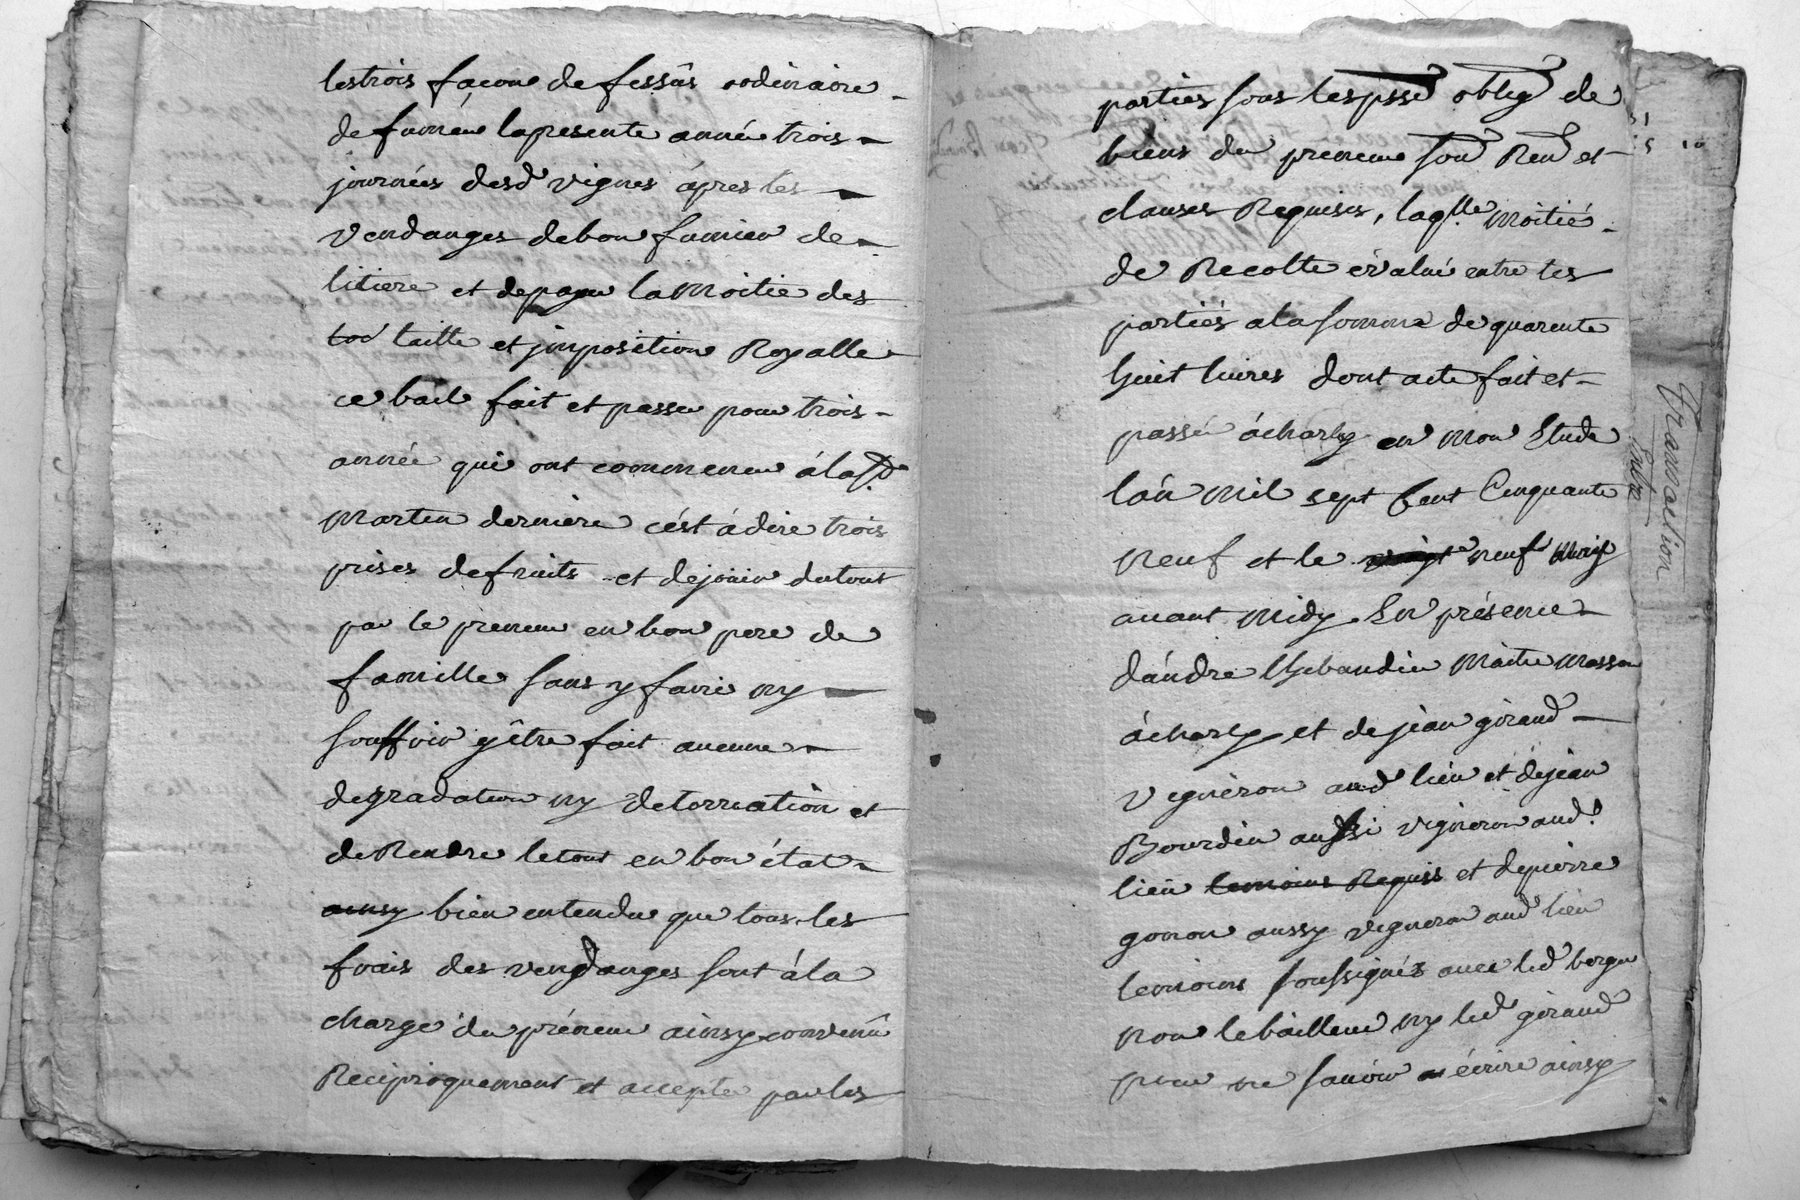 les trois façons de fessûs ordinaire
de fumér la presente année trois
journées desd vignes aprés les
vendanges de bon fumier de
litiere et de payer la moitié des
taille et jmposition Royalle
ce bail fait et passer pour trois
année qui ont commencer á la St
martin derniere cést á dire trois
prises de fruits et de jouir du tout
par le preneur en bon pere de
famille sans y faire ny
souffrir y être fait aucune
degradation ny deterroration et
de Rendre le tout en bon état
ainsy bien entendu que tous les
frais des vendanges sont á la
charge du préneur ainsy convenû
Reciproquement et accepté par les
parties sous les psse oblig de
biens du preneur soun Renon et
clauses Requises, laqlle moitié
de Recolte évalué entre les
partiés a la somme de quarente
huit livres dont acte fait et
passér á charly en mon Etude
lán mil sept Cent Cinquante
neuf et le neuf may
avant midy En présence
dándre thebaudin maitre masson
á charly et de jean giraud
vigneron aud lieu et de jean
Bourdin aussi vigneron aud
lieu temoins Requis et de pierre
gonon aussy vigneron aud lieu
temoins soussignés avec led berger
non le bailleur ny led giraud
pour ne savoir écrire ainsy
Transaction
Entre